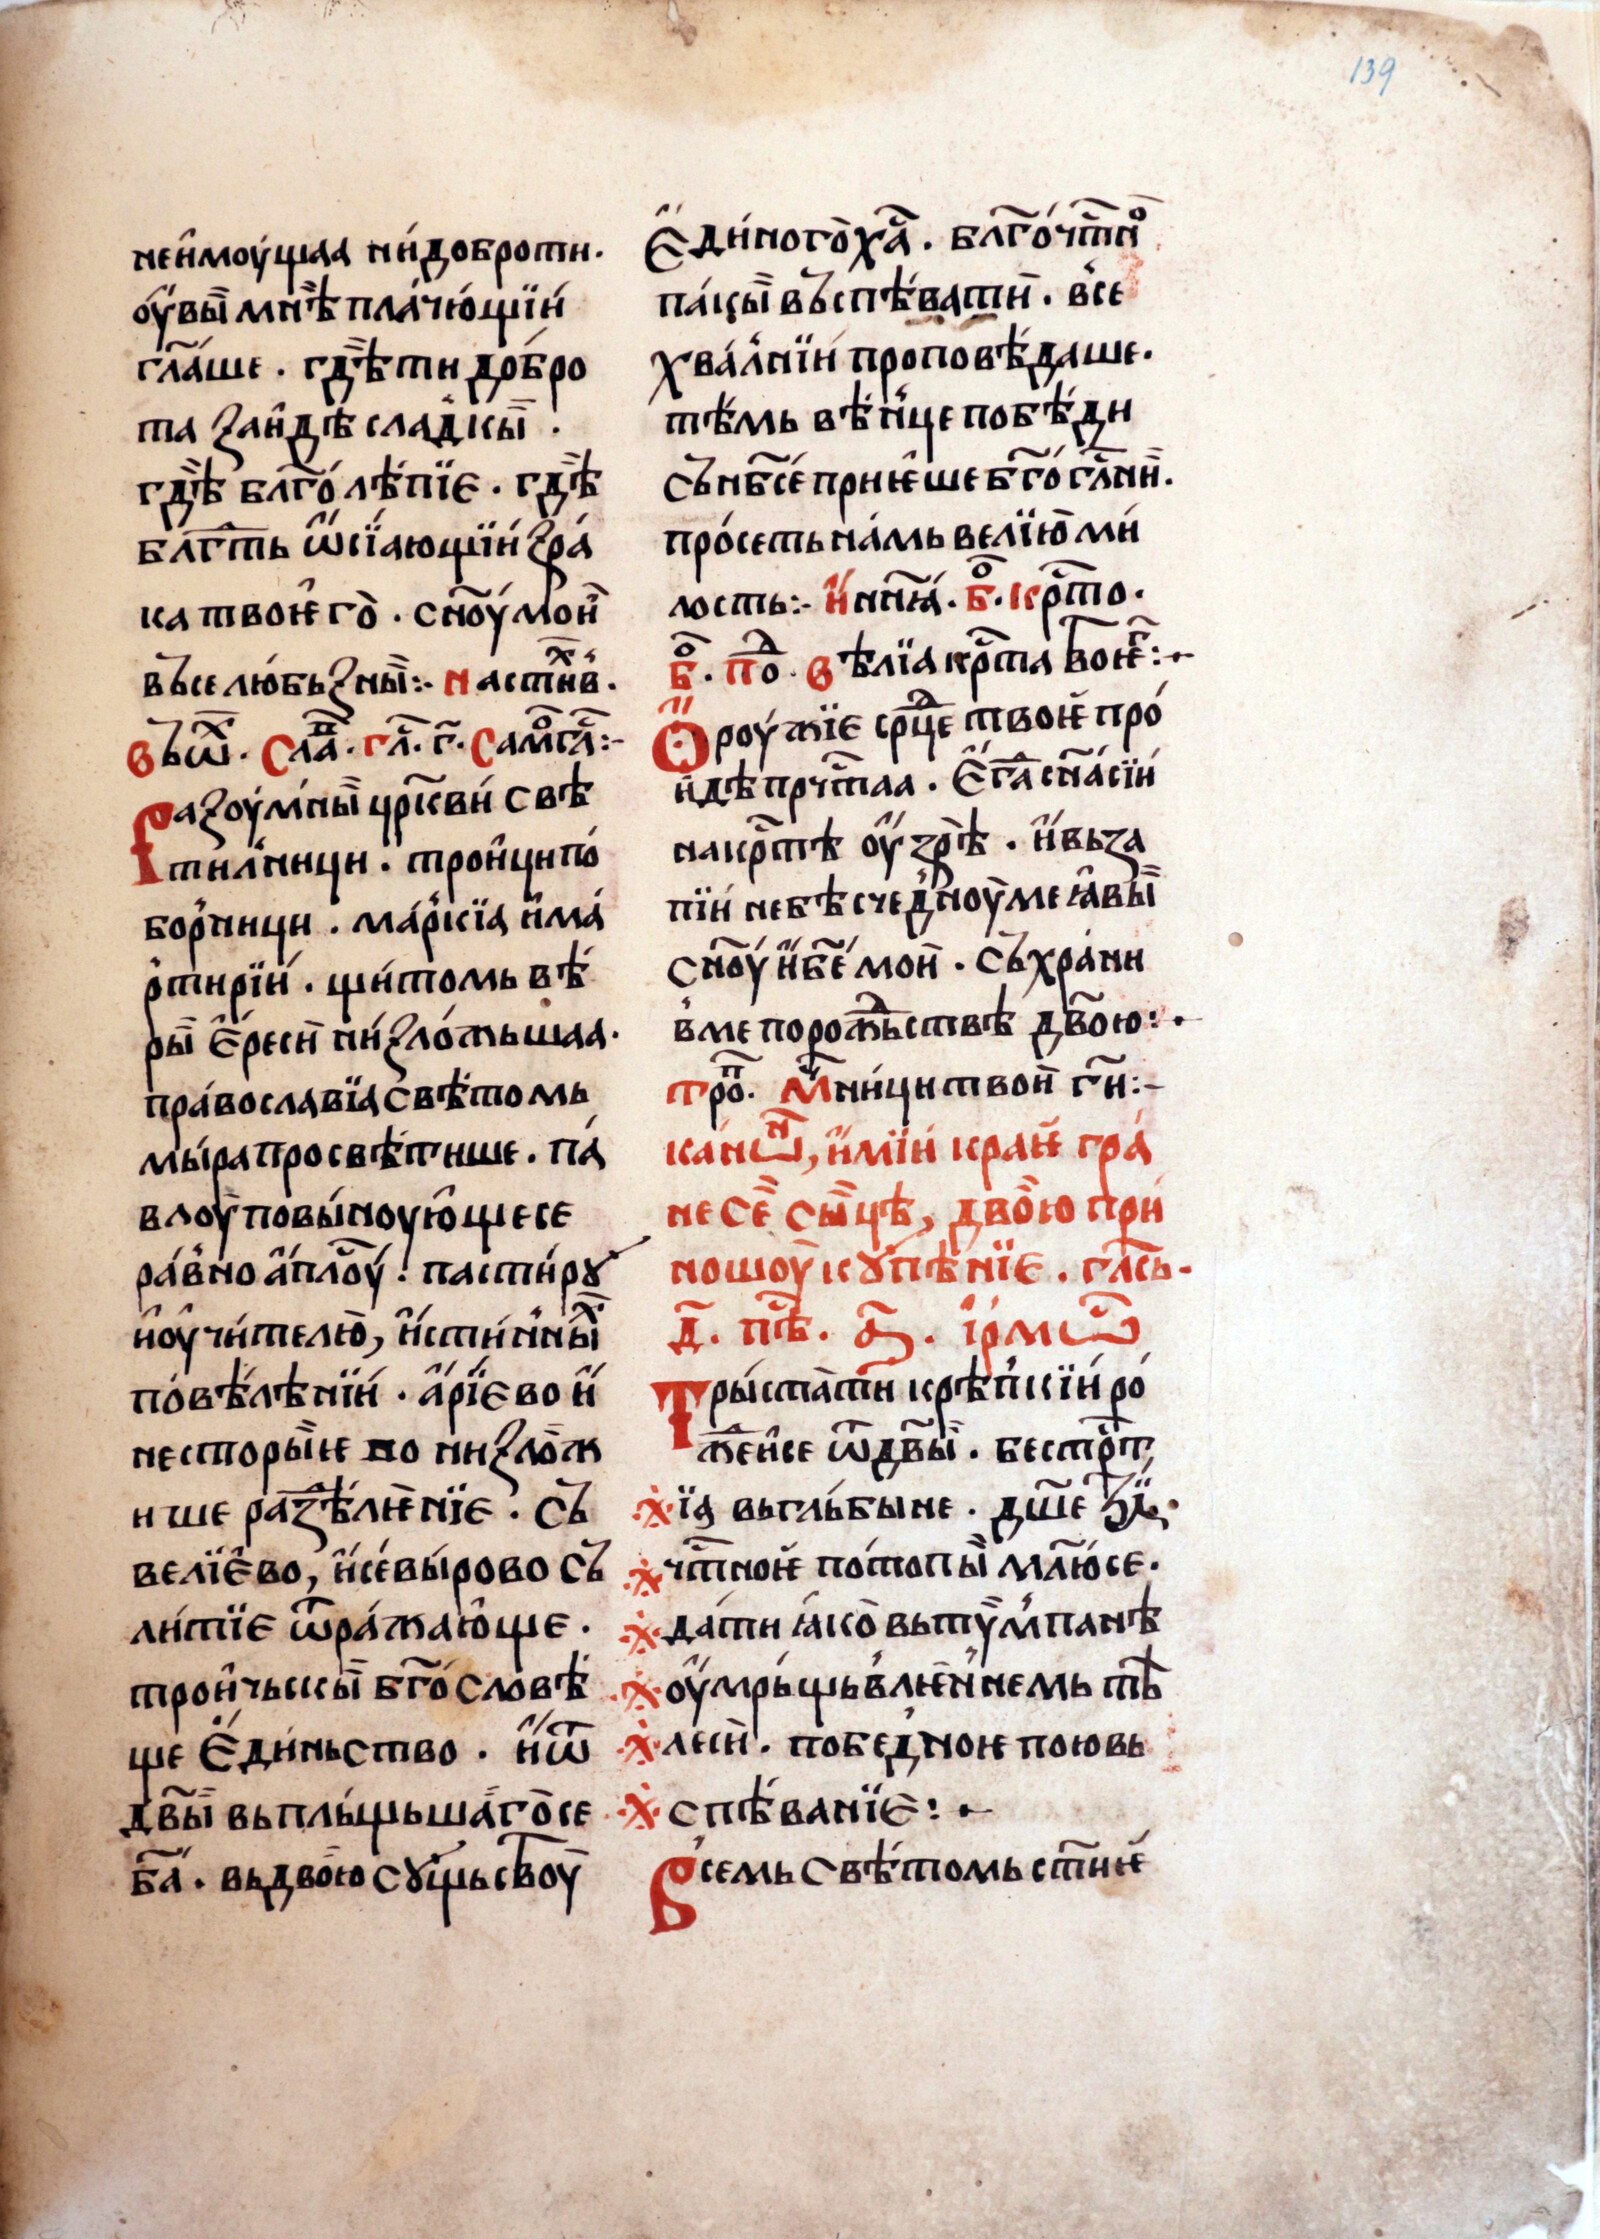 139
неи҆моуща́а ни́доброти.
оу҆вы̏ мнѣ̏ пла́чю́щїи́
гл҃аше . гдѣ̏ ти до́бро
та заи҆́дѣ сла́дкы̏ .
гдѣ̏ блг҃олѣ́пїѥ . гдѣ̏
блг҃ть ѡ҆сїа́ющїи́ зра́
ка твоѥ҆го̀ . сн҃оу́ мои҆̀
въсе лю́бьзны̏:· на стиⷯв҃ .
въѿⷯ . слаⷡ҇ . гл҃ . г҃ . самⷪ҇гл҃а:–
разоу́мны̏ црк҃ви́ свѣ
тил́ници . трои҆́ци по́
бор́ници . ма́ркїа и҆ма́
ртирїи́ . щи́томь вѣ́
ры̏ є҆́реси̏ ни́зло́жьшаа .
пра́вославїа свѣ́томь
мы́ра просвѣ́тише . па́
влоу̏ повы́ноую҆щесе
ра́вно а҆пл҃оу́ . пасти́рꙋ
и҆оу҆чи́телю̏, и҆́сти́нныⷯ
по́вѣ́лѣнїи́ . а҆́рїєво и҆̀
несторы̏ѥ во низло̏ж
ише раздѣ́лѥ́нїє . съ
велїє҆́во, и҆́се́вы́рово съ
ли́тїє ѿра́жаю҆ще .
трои҆́чьскы̏ бг҃осло́вѣ́
ще є҆ди́ньство . и҆ѿ
дв҃ы̏ вьплы́щьша́го̏се
бг҃а́ . вьдво́ю сꙋ́щьство́у̏
є҆ди́ного̏ ха҃ . блг҃о́чт҃нⷪ
па́кы̏ въспѣ́вати̏ . в́се
хва́л́нїи́ проповѣ́даше .
тѣ́мь вѣ́н́це побѣ́ди
съ нб҃се́ приѥ҆́ше бг҃о́гл҃ни̏ .
про́сеть на́мь велїю̏ ми́
лость:· и҆ нн҃ꙗ . бⷪ҇ . крⷭ҇то .
бⷪ҇ . поⷣ . вѣ́лїа крⷭ҇та твоѥⷢ҇:·
ѻ҆роу́жїє срⷣце твоѥ̏ про́
и҆́дѣ прчⷭ҇таа . є҆гда̀ сн҃а си́и
на крⷭ҇тѣ оу҆́зрѣ̏ . и҆́ вьза
пїи́ не бѣсчед́ноу̏ ме ꙗ҆вы̏
сн҃оу́ и҆ бж҃е́ мои̏ . съхра́ни
в́ме по рожⷣьствѣ̏ дв҃ою:·
троⷫ҇ . мⷱ҇ни́ци твои̏ гн҃:–
ка́нѡⷩ҇, и҆́мїи́ краѥ̏ гра́
не се̏ сы̏цѣ, дво́ю при́
ношоу̏ кꙋ́пѣнїє . гл҃сь .
д҃ . пѣⷭ҇ . а҃ . і҆рмѡⷭ҇
Тры́ста̀ти крѣп́кїи́ ро́
же́и҆се ѿ дв҃ы̏ . бестрⷭ҇т
хїа вьглы́бы́не .
чⷭ҇тноѥ̏ по́топы̏ млю́се .
да́ти ꙗ҆ко̏ вьтѵм́панѣ
оу҆́мры́щьв́лѥ́ннемь тѣ̏
леси̏ . побе́д́ноѥ поювь
спѣ́ванїє:·
В́семь свѣ́томь стⷭ҇нѥ̏